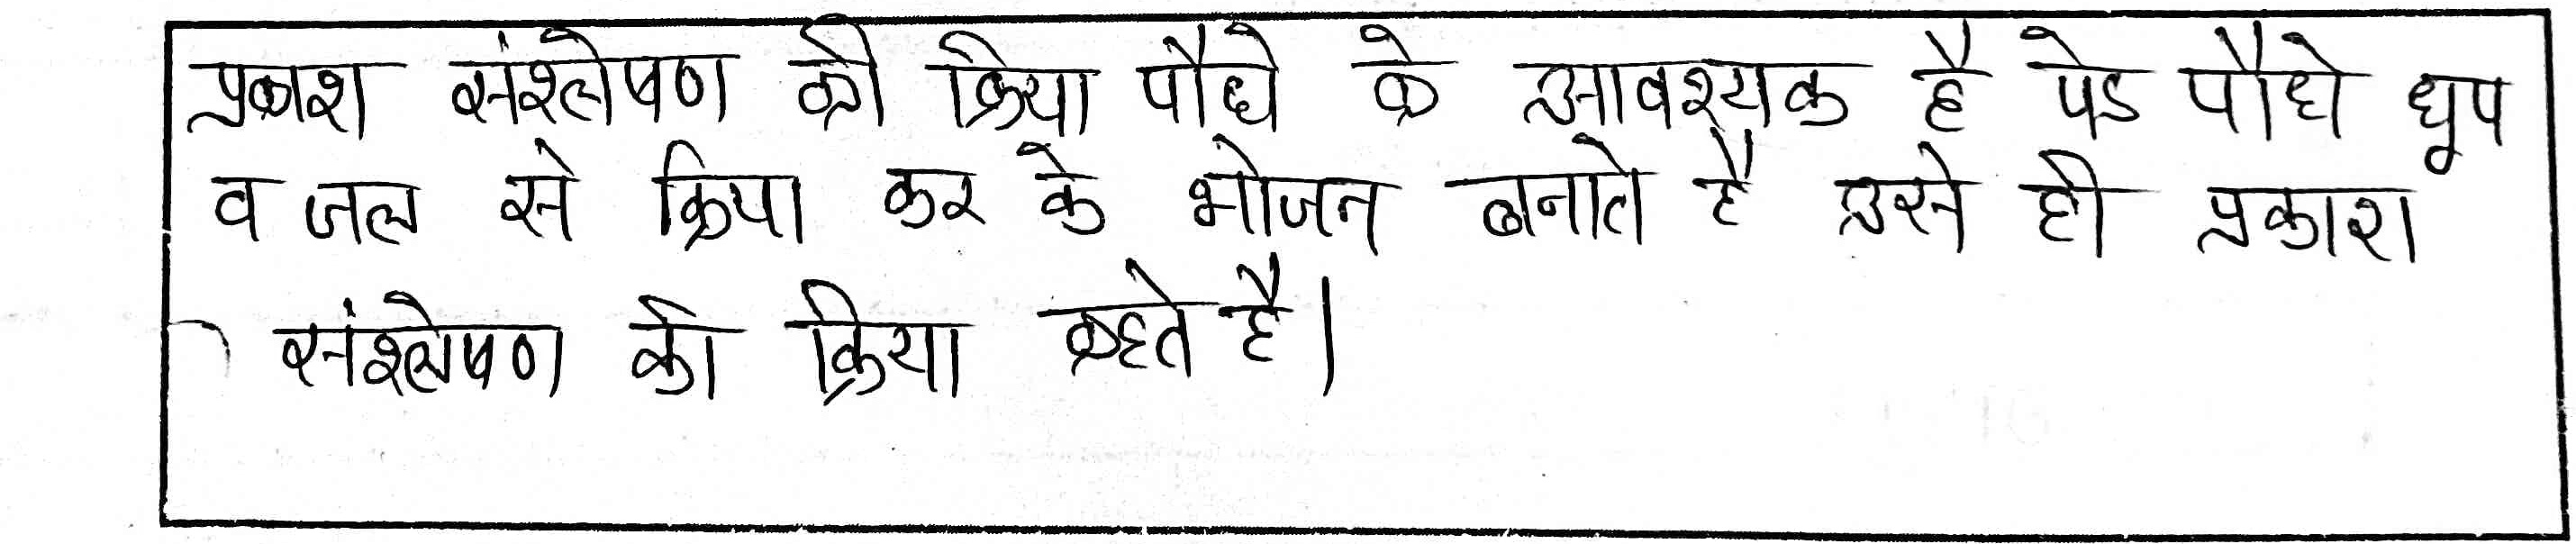 प्रकाश संश्लेषण की क्रिया पौधे के आवश्यक है पेड पौधे धूप
व जल से क्रिया कर के भोजन बनाते है उसे ही प्रकाश
संश्लेषण की क्रिया कहते है।